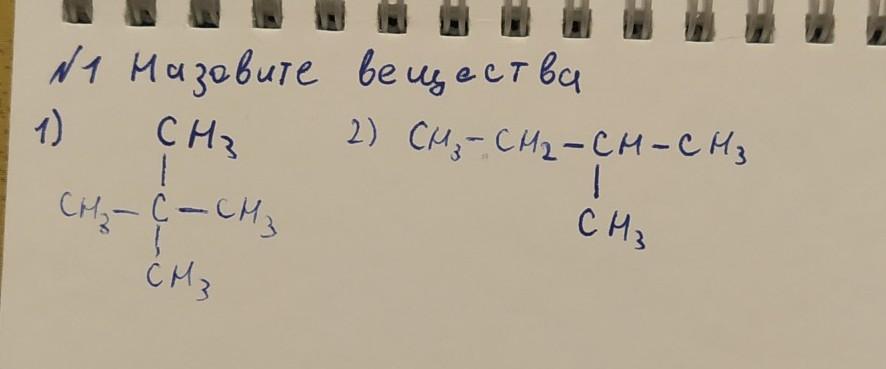 №1 Назовите вещества
1) CH3 2) CH3-CH2-CH-CH3
| |
CH3-C-CH3 CH3
|
CH3